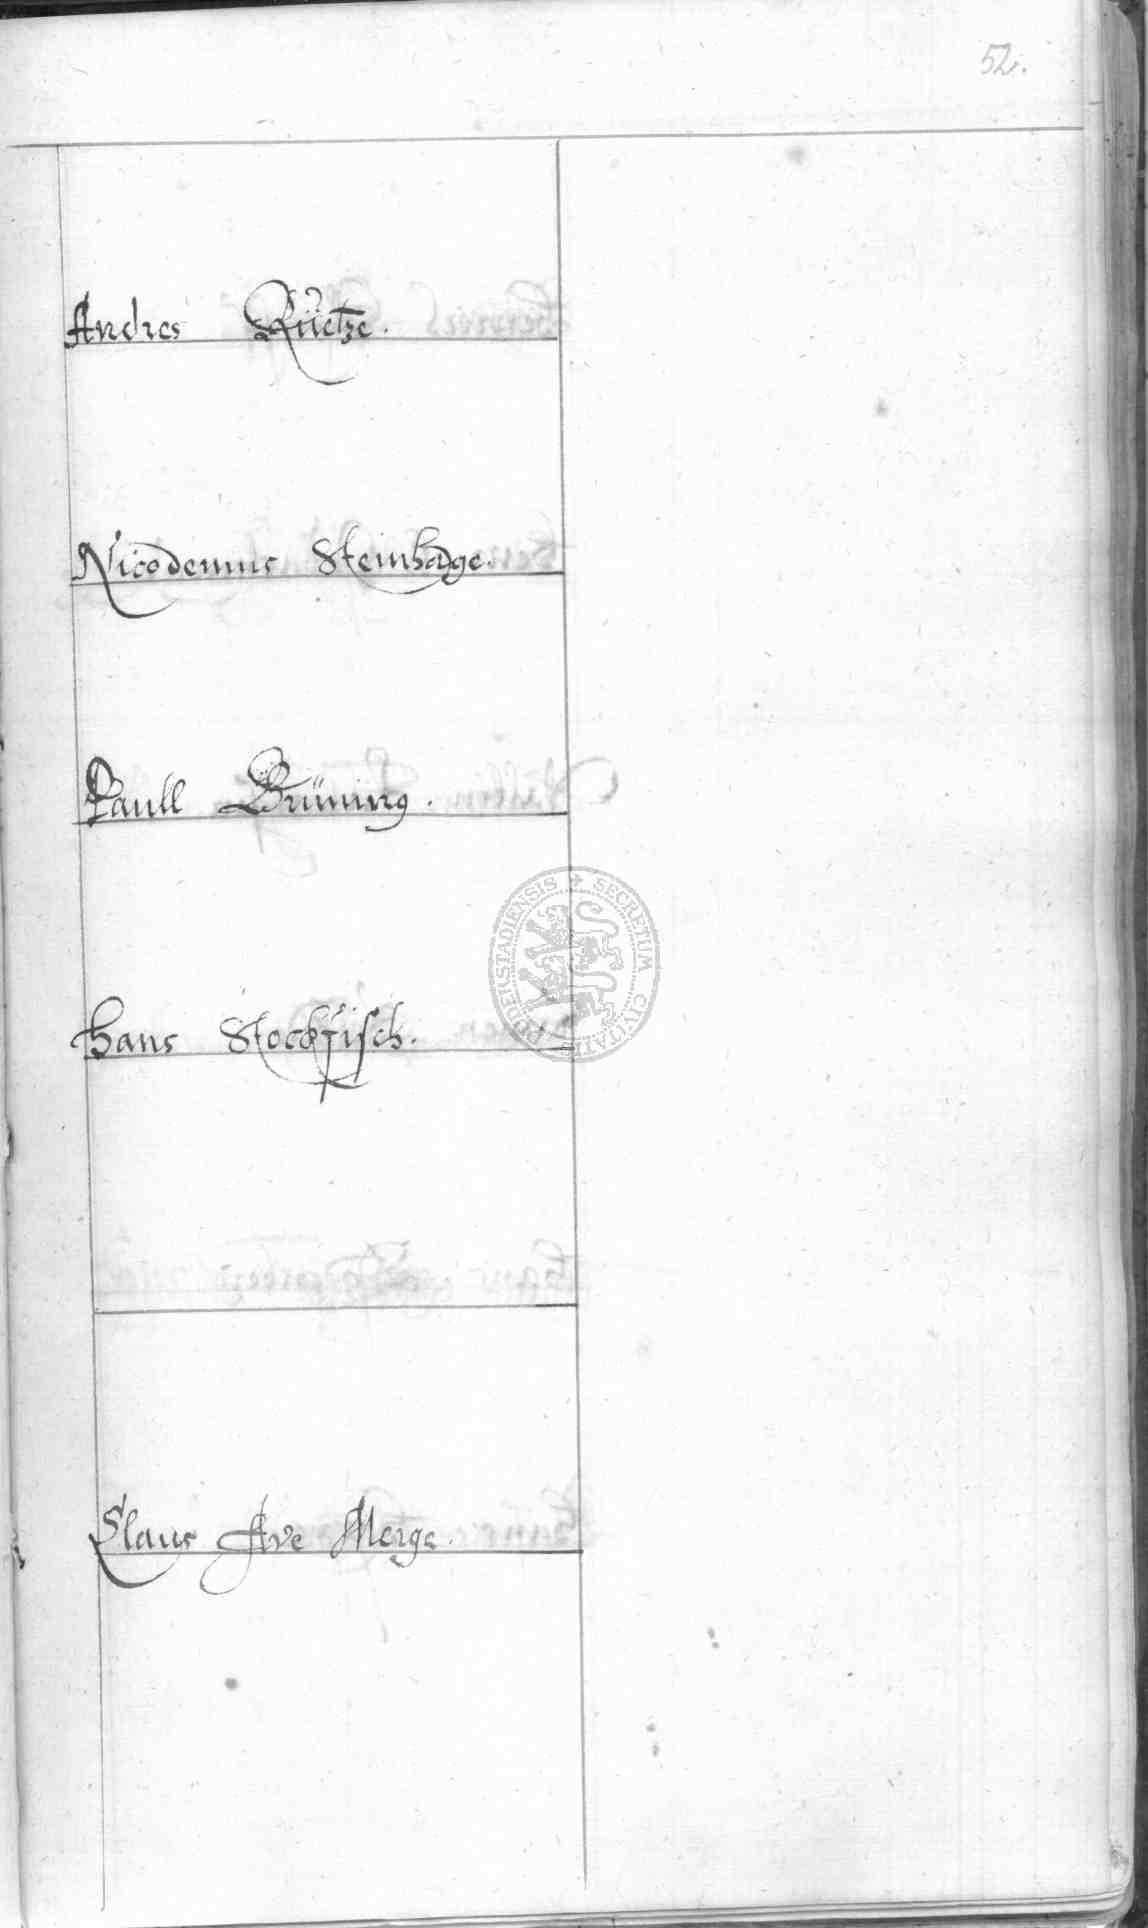 52.
Andres
Nicodemus Steinhage.
Paull Brüning.
SECRETUM CIVITATIS DUDERSTADIENSIS
Hans Stockfisch.
Claus Ave Merge.